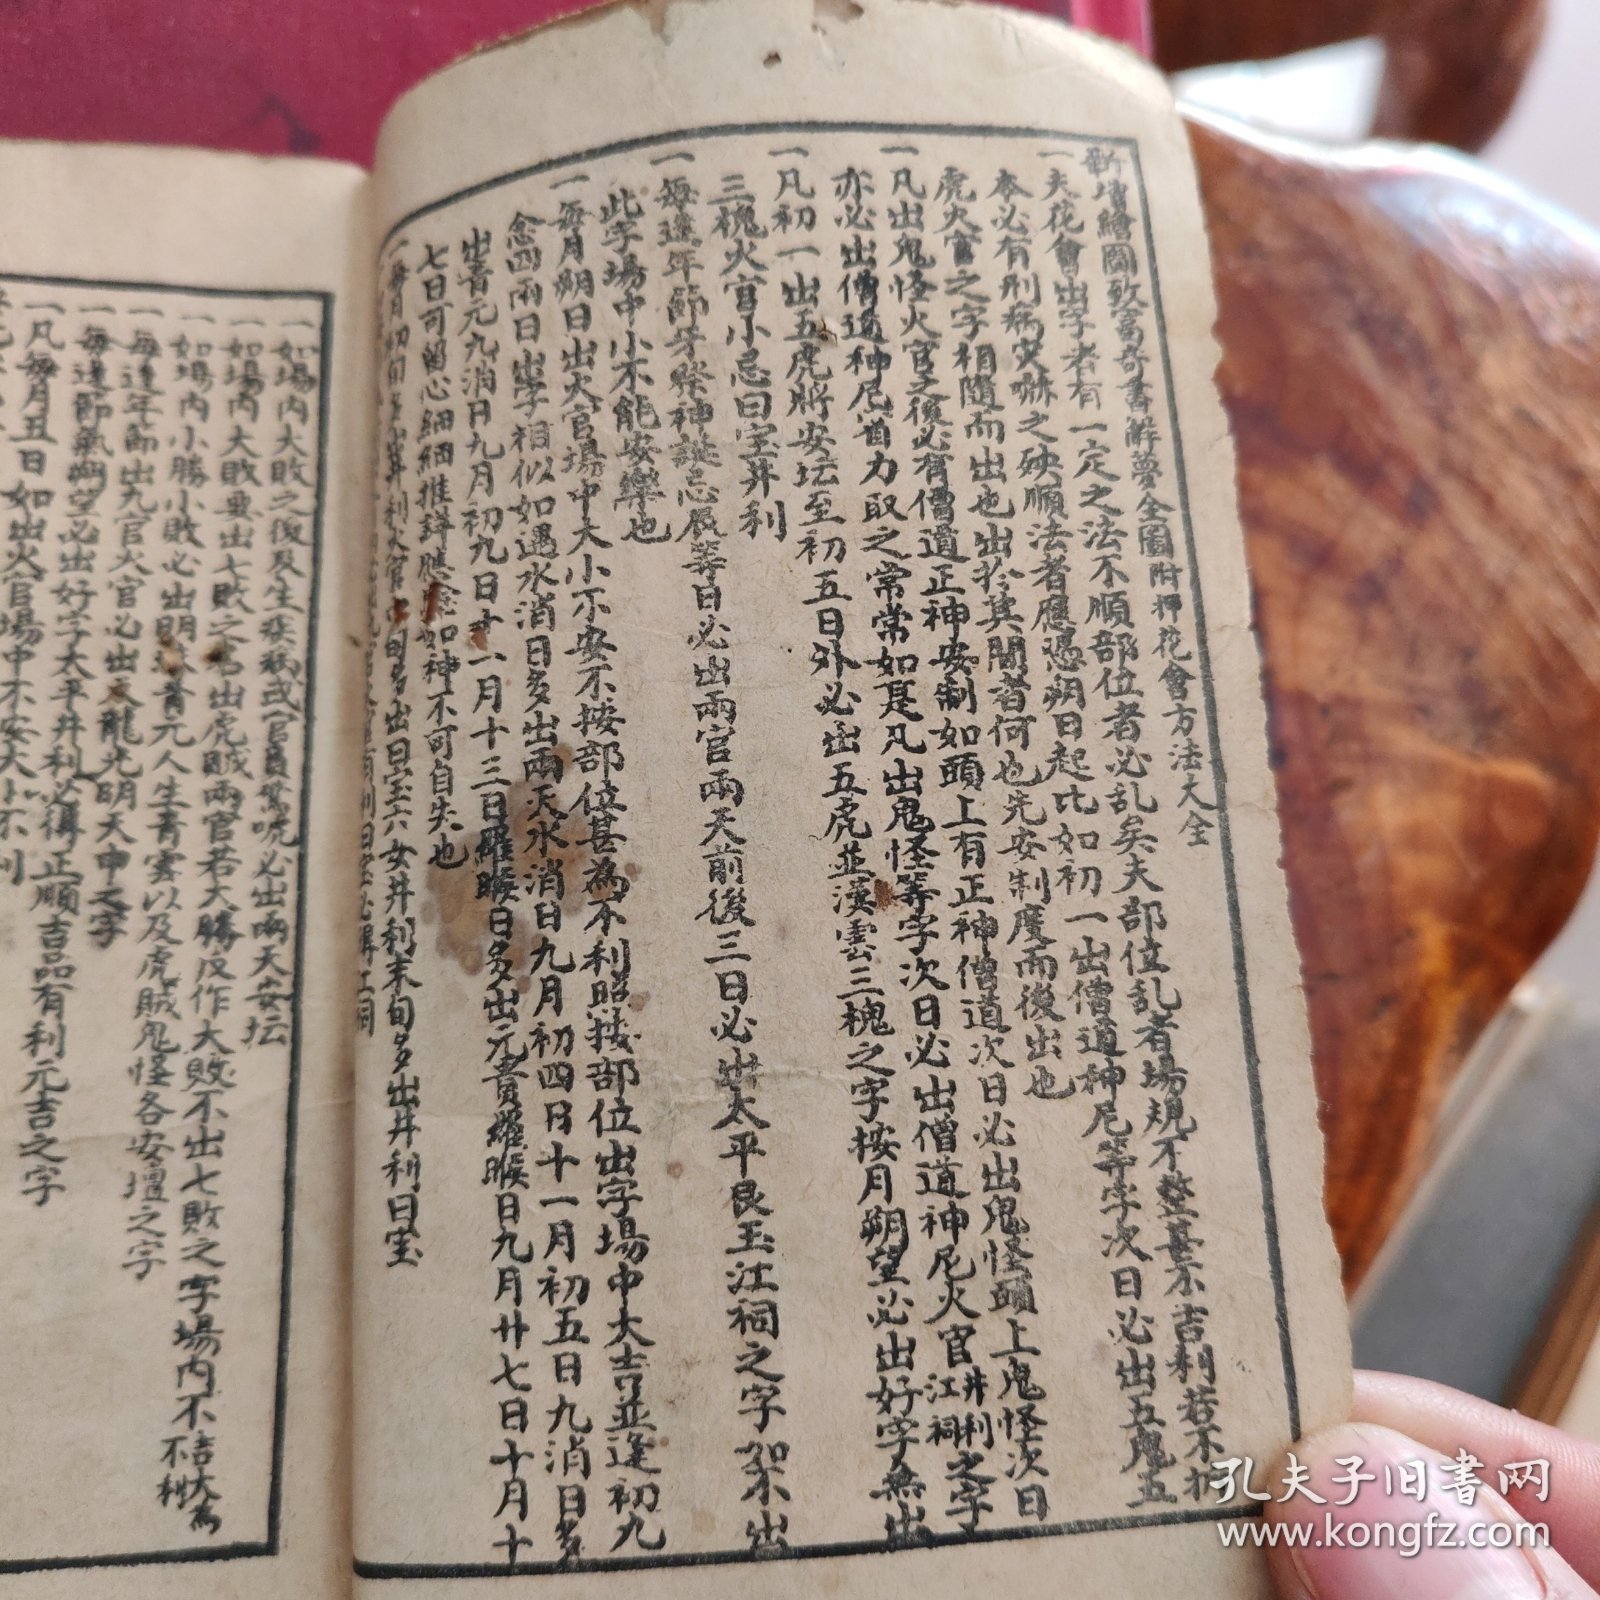 新增繪圖致富奇書解夢全圖附押花會方法大全
一夫花會出字者有一定之法不順部位者必乱矣夫部位乱者場規不整甚不吉利若不
本必有刑病災嚇之殃順法者應憑朔日起比如初一出僧道神尼等字次日必出五鬼五
虎火官之字相隨而出也出於其間者何也先安制度而後出也
一凡出鬼怪火官之後必有僧道正神安制如頭上有正神僧道次日必出鬼怪頭上鬼怪次日
亦必出僧道神尼首力取之常常如是凡出鬼怪等字次日必出僧道神尼火官井利江祠之字
一凡初一出五虎將安坛至初五日外必出五虎並漢雲三槐之字按月朔望必出好字無出
三槐火官小忌曰宝井利
一每逢年節牙祭神誕忌辰等日必出兩官兩天前後三日必出太平艮玉江祠之字如不出
此字場中小不能安樂也
一每月朔日出火官場中大小不安不按部位甚為不利照按部位出字場中大吉並逢初九
念四兩日出字相似如遇水消日多出兩天水消日九月初四日十一月初五日九消日多
出青元九消日九月初九日十一月十三日羅睺日多出元貴羅睺日九月廿七日十月十
七日可留心細細推詳應驗如神不可自失也
一每月初旬多出井利火官中旬多出曰宝玉六女井利末旬多出井利曰宝
一如場內大敗之後及生疾病或官員驚唬必出兩天安坛
一如場內大敗要出七敗之名出虎賊兩官若大勝反作大敗不出七敗之字場內不吉大為不利
一如場內小勝小敗必出明珠青元人生青雲以及虎賊鬼怪各安壇之字
一每逢年節出九官火官必出天龍光明天申之字
一每逢節氣朔望必出好字太平井利必得正順吉品有利元吉之字
一凡每月丑日如出火官場中不安大小不利
孔夫子旧书网
www.kongfz.com